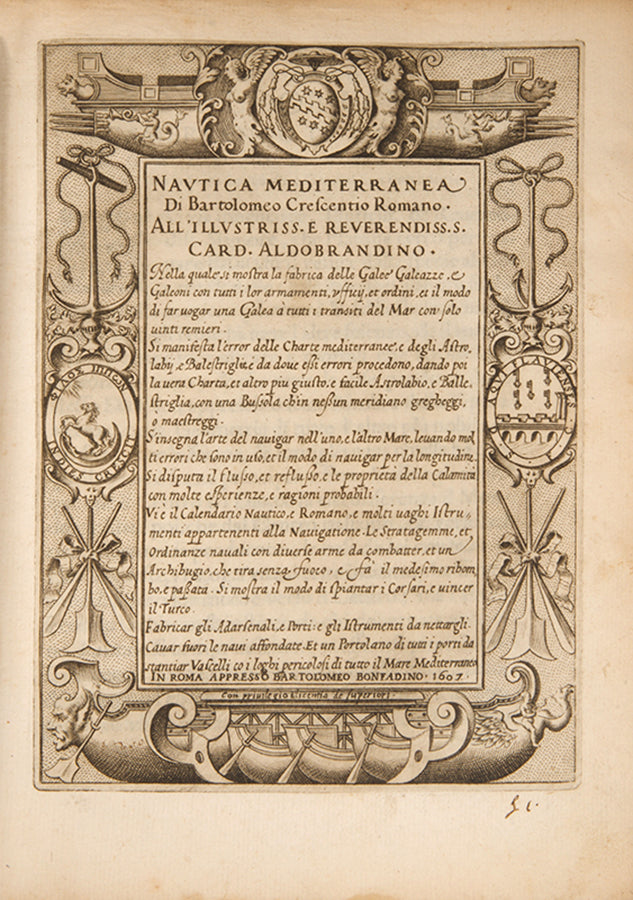 NAVTICA MEDITERRANEA
Di Bartolomeo Crescentio Romano.
ALL'ILLVSTRISS. E REVERENDISS. S.
CARD. ALDOBRANDINO.
Nella quale si mostra la fabrica delle Galee Galeazze, e
Galeoni con tutti i lor armamenti, vfficij, et ordini, et il modo
di far uogar una Galea à tutti i transiti del Mar con solo
uinti remieri.
Si manifesta l'error delle Charte mediterranee, e degli Astro,
laby, e Balestriglie, e da doue essi errori procedono, dando poi
la uera Charta, et altro piu giusto, e facile Astrolabio, e Balle,
striglia, con una Bussola ch'in nessun meridiano gregheggi,
ò maestreggi.
S'insegna l'arte del nauigar nell'uno, e l'altro Mare, leuando mol
ti errori che sono in uso, et il modo di nauigar per la longitudine.
Si disputa il flusso, et reflusso, e le proprietà della Calamita
con molte esperienze, e ragioni probabili.
Vi è il Calendario Nautico, e Romano, e molti uaghi Istru,
menti appartenenti alla Nauigatione. Le Stratagemme, et
Ordinanze nauali con diuerse arme da combatter, et un
Archibugio, che tira senza fuoco, e fà il medesimo ribom,
bo, e passata. Si mostra il modo di spiantar i Corsari, e uincer
il Turco.
Fabricar gli Adarsenali, e Porti: e gli Istrumenti da nettargli.
Cauar fuori le naui affondate. Et un Portolano di tutti i porti da
stantiar Vascelli co i loghi pericolosi di tutto il Mare Mediterraneo
IN ROMA APPRESSO BARTOLOMEO BONFADINO. 1607.
Con priuilegio Licentia de superiori.
INDIES CRESCIT